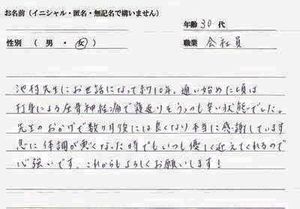 お名前（イニシャル・匿名・無記名で構いません）
年齢 30 代
性別（ 男 ・ 女 ）
職業 会社員
池村先生にお世話になって約10年。通い始めた頃は
打身による坐骨神経痛で寝返りをうつのも辛い状態でした。
先生のおかげで数ヶ月後には良くなり本当に感謝しています
急に体調が悪くなった時でもいつも優しく迎えてくれるので
心強いです。これからもよろしくお願いします！